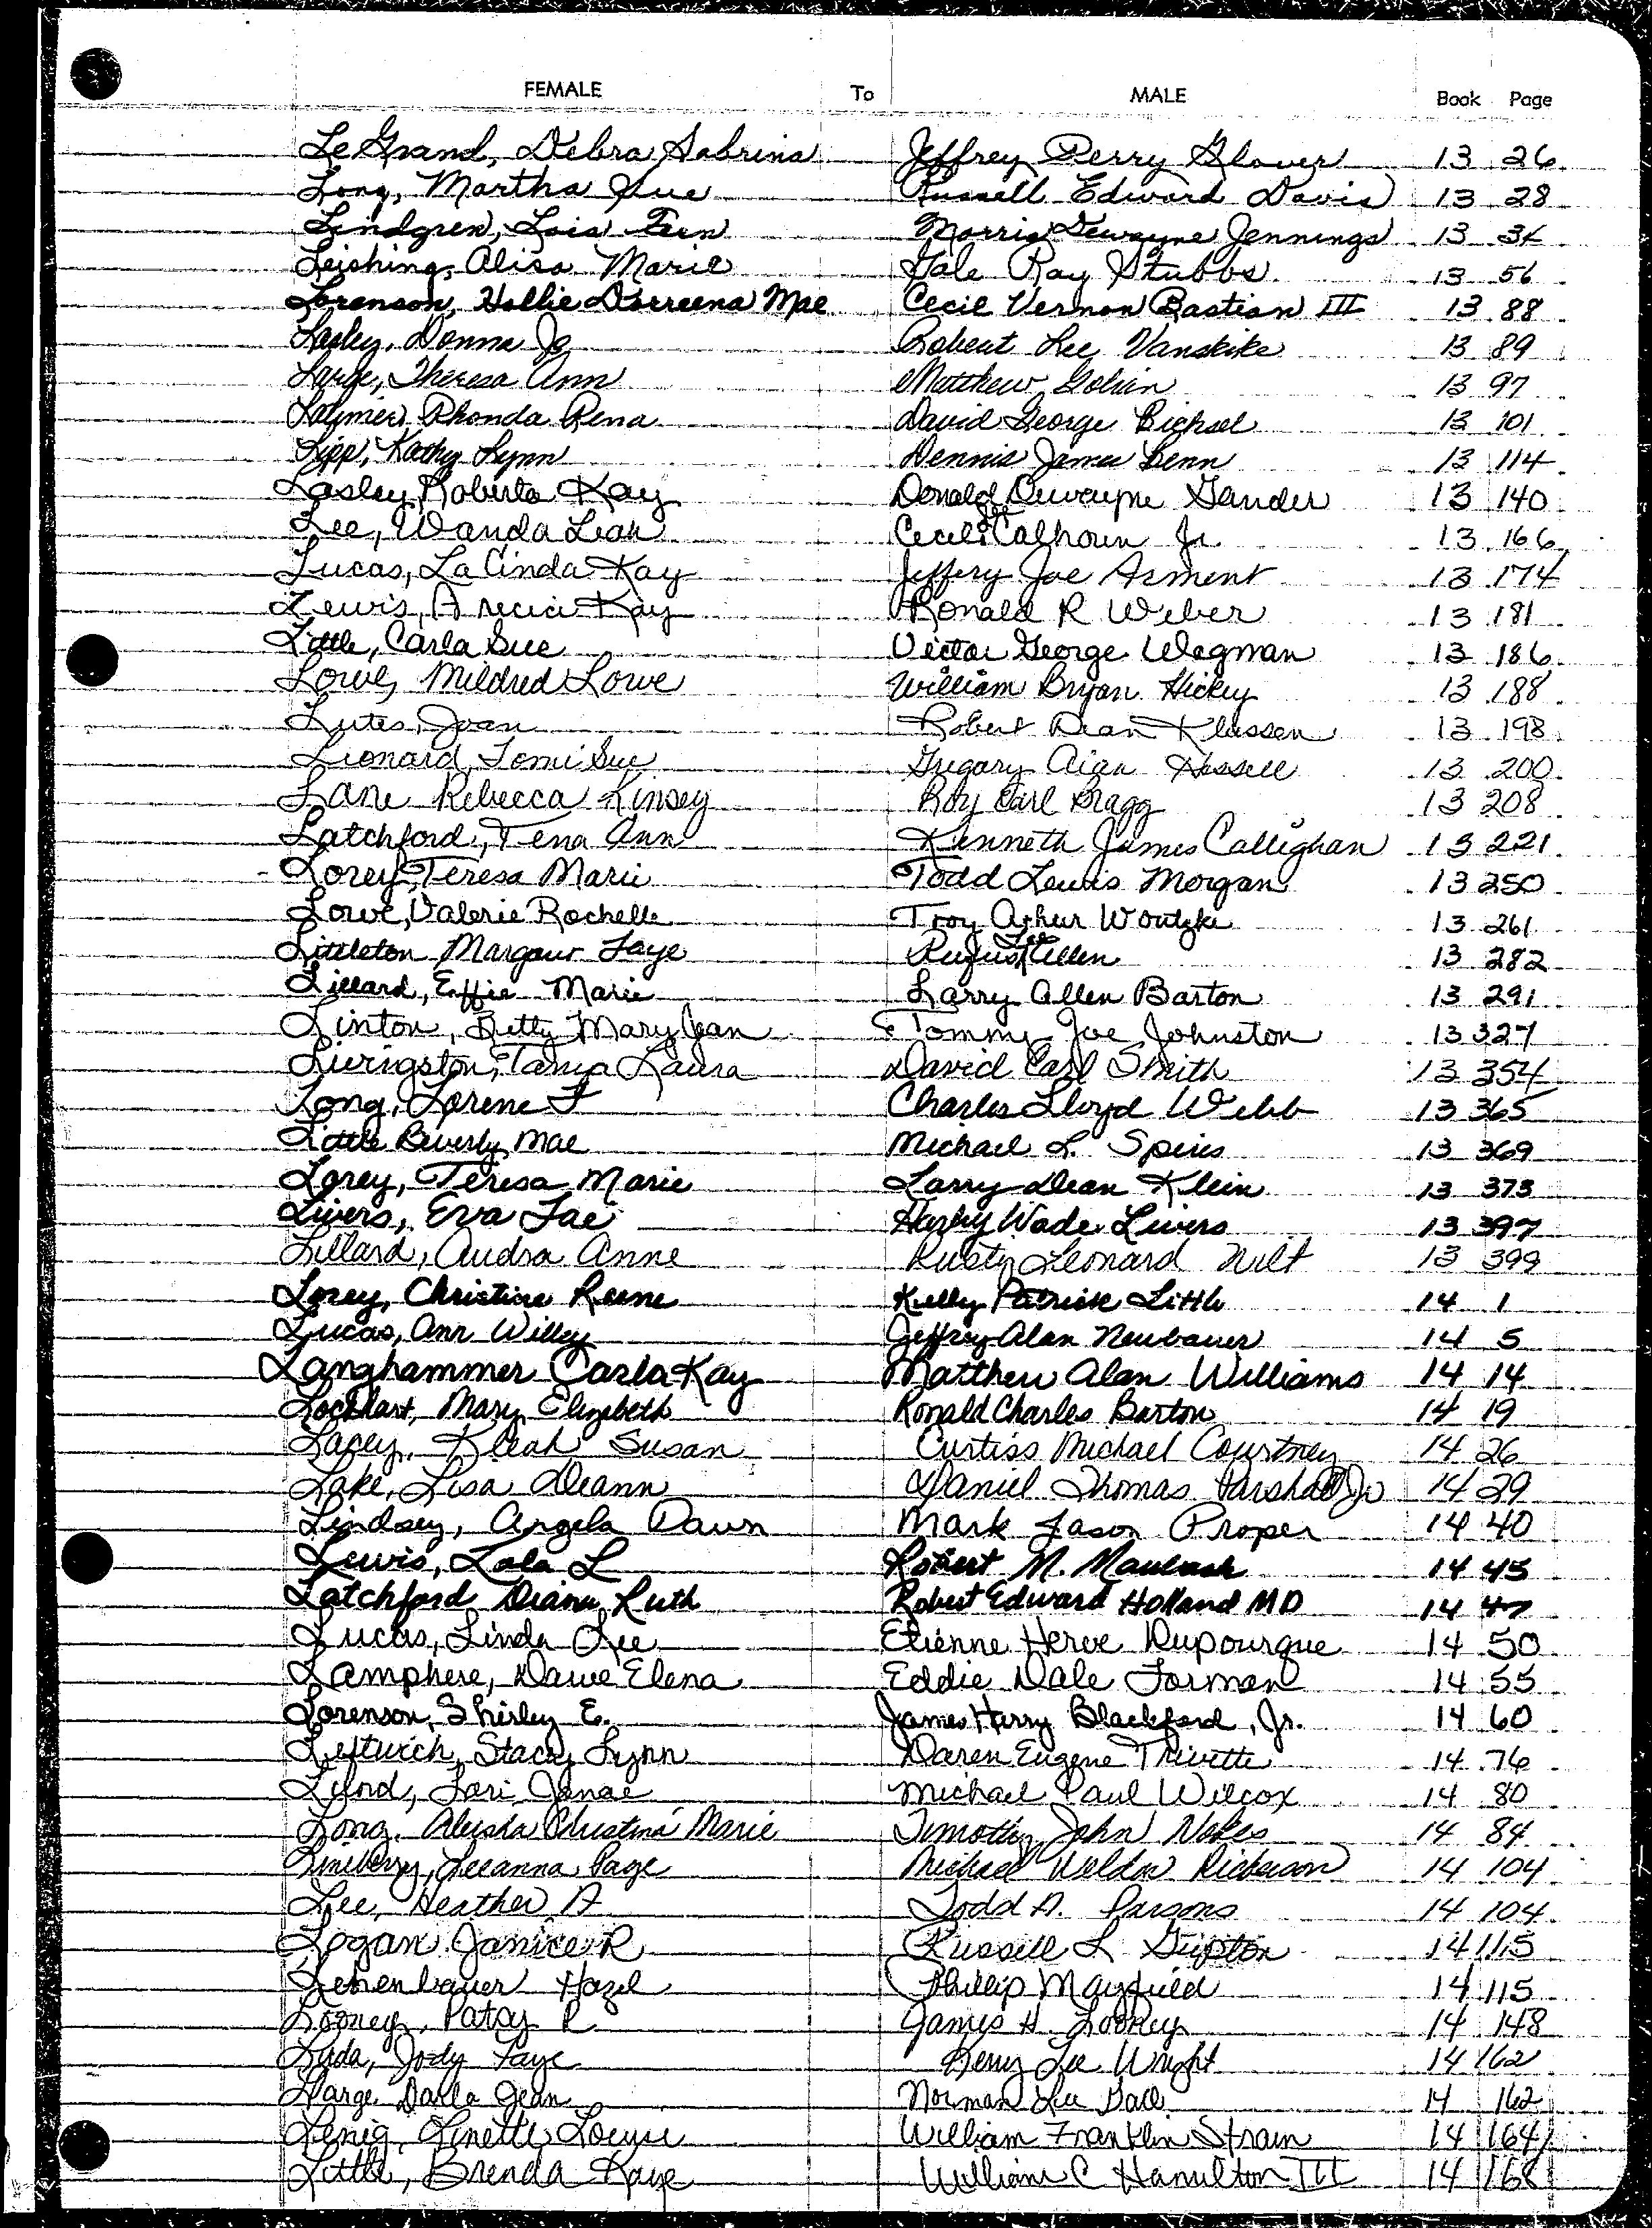 FEMALE To MALE Book Page
LeGrand, Debra Sabrina Jeffrey Perry Glover 13 26
Long, Martha Sue Russell Edward Davis 13 28
Lindgren, Lois Fern Morris Dewayne Jennings 13 34
Leishing, Alisa Marie Gale Ray Stubbs 13 56
Lorenson, Hollie Dorreena Mae Cecil Vernon Bastian III 13 88
Lasley, Donna Jo Robert Lee Vanskike 13 89
Large, Theresa Ann Matthew 13 97
Latimer, Rhonda Rena David George Bichsel 13 101
Lipp, Kathy Lynn Dennis James Benn 13 114
Lasley, Roberta Kay Donald Dewayne Gander 13 140
Lee, Wanda Leah Cecil Calhoun Jr 13 166
Lucas, LaCinda Kay Jeffery Joe Arment 13 174
Lewis, Kay Ronald R Weber 13 181
Little, Carla Sue Victor George Wagman 13 186
Lowe, Mildred Lowe William Bryan Hickey 13 188
Lutes, Joan Robert Dean Klassen 13 198
Leonard, Tomi Sue Gregary Alan Hassell 13 200
Lane Rebecca Kinsey Roy Carl Bragg 13 208
Latchford, Tena Ann Kenneth James Callighan 13 221
Lorey, Teresa Marie Todd Lewis Morgan 13 250
Lowe, Valerie Rochelle Troy Arhur Woutzke 13 261
Littleton Margaur Faye Rufus Lee Allen 13 282
Lillard, Effie Marie Larry Allen Barton 13 291
Linton, Betty Mary Jean Tommy Joe Johnston 13 327
Livingston, Tanya Laura David Carl Smith 13 354
Long, Lorene F Charles Lloyd Webb 13 365
Little Beverly Mae Michael L. Spires 13 369
Lorey, Teresa Marie Larry Dean Klein 13 373
Livers, Eva Fae Harley Wade Livers 13 397
Lillard, Audra Anne Rusty Leonard Nilt 13 399
Lorey, Christine Reene Kelly Patrick Little 14 1
Lucas, Ann Willey Jeffrey Alan Neubauer 14 5
Langhammer Carla Kay Matthew Alan Williams 14 14
Lockhart, Mary Elizabeth Ronald Charles Barton 14 19
Lacey, Kleah Susan Curtiss Michael Courtney 14 26
Lake, Lisa Deann Daniel Thomas Parshall Jr 14 29
Lindsey, Angela Dawn Mark Jason Proper 14 40
Lewis, Lola L Robert M. 14 45
Latchford Diana Ruth Robert Edward Holland MD 14 47
Lucas, Linda Lee Etienne Herve Dupourque 14 50
Lamphere, Dawe Elena Eddie Dale Forman 14 55
Lorenson, Shirley E. James Harry Blackford, Jr. 14 60
Leftwich, Stacey Lynn Daren Eugene Trivette 14 76
Lori Janae Michael Paul Wilcox 14 80
Long, Aleisha Christina Marie Timothy John Nokes 14 84
Lineberry, Leeanna Page Michael Weldon Dickerson 14 104
Lee, Heather A Todd A. Parsons 14 104
Logan Janice R Russell L Gupton 14 115
Lehenbauer Hazel Phillip Mayfield 14 115
Looney, Patsy R James H. Looney 14 148
Lyda, Jody Faye Kerry Lee Wright 14 162
Large Darla Jean Norman Lee Ball 14 162
Lenig, Linette Louise William Franklin Strain 14 164
Little, Brenda Kaye William C Hamilton III 14 168